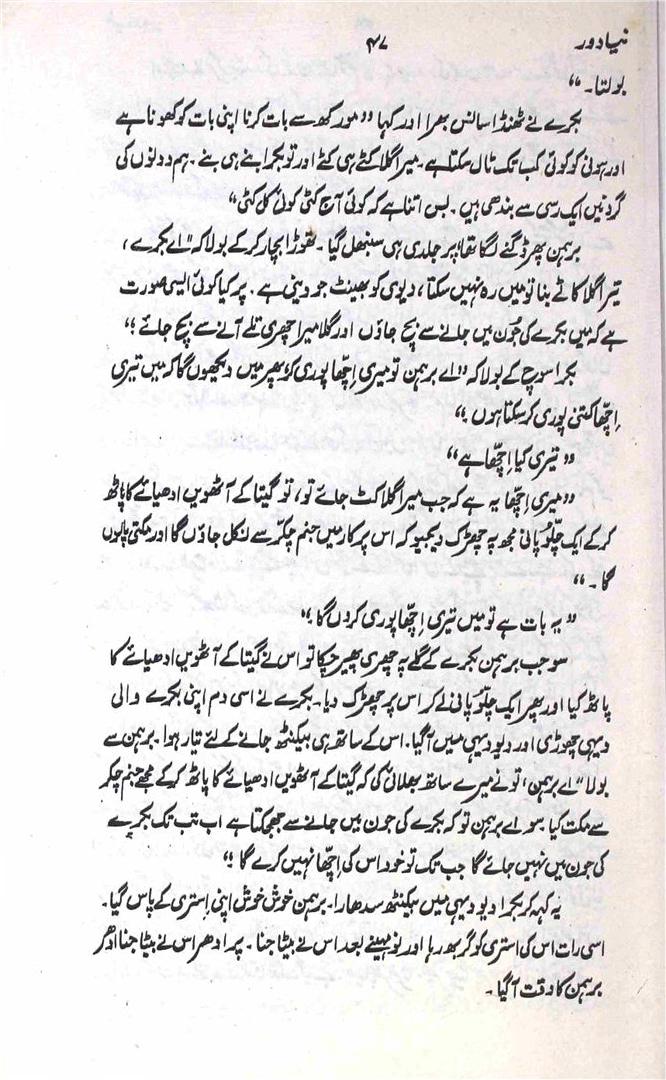 نیا دور ۴۷
بولتا۔ “
بکرے نے ٹھنڈا سانس بھرا اور کہا ”مورکھ سے بات کرنا اپنی بات کو کھونا ہے
اور ہونی کو کوئی کب تک ٹال سکتا ہے۔ میرا گلا کٹے ہی کٹے اور تو بکرا بنے ہی بنے۔ ہم دونوں کی
گردنیں ایک رسی سے بندھی ہیں۔ بس اتنا ہے کہ کوئی آج کٹی کوئی کل کٹی“
برہمن پھر ڈگنے لگا تھا پر جلدی ہی سنبھل گیا۔ تھوڑا بچار کرکے بولا کہ ”اے بکرے،
تیرا گلا کاٹے بنا تو میں رہ نہیں سکتا، دیوی کو بھینٹ جو دینی ہے۔ پر کیا کوئی ایسی صورت
ہے کہ میں بکرے کی جُون میں جانے سے بچ جاؤں اور گلا میرا چھری تلے آنے سے بچ جائے؟“
بکرا سوچ کے بولا کہ ”اے برہمن تو میری اِچھا پوری کر، پھر میں دیکھوں گا کہ میں تیری
اِچھا کتنی پوری کر سکتا ہوں۔“
”تیری کیا اِچھا ہے“
”میری اِچھا یہ ہے کہ جب میرا گلا کٹ جائے تو، تو گیتا کے آٹھویں ادھیائے کا پاٹھ
کرکے ایک چلّو پانی مجھ پہ چھڑک دیجیو کہ اس پرکار میں جنم چکر سے نکل جاؤں گا اور مکتی پالوں
گا۔ “
”یہ بات ہے تو میں تیری اِچھا پوری کروں گا۔“
سو جب برہمن بکرے کے گلے پہ چھری پھیر چکا تو اس نے گیتا کے آٹھویں ادھیائے کا
پاٹھ کیا اور پھر ایک چلّو پانی لے کر اس پر چھڑک دیا۔ بکرے نے اسی دم اپنی بکرے والی
دیہی چھوڑی اور دیو دیہی میں آگیا۔ اس کے ساتھ ہی بیکنٹھ جانے کے لئے تیار ہوا۔ برہمن سے
بولا ”اے برہمن، تو نے میرے ساتھ بھلائی کی کہ گیتا کے آٹھویں ادھیائے کا پاٹھ کرکے مجھے جنم چکر
سے مکت کیا۔ سو اے برہمن تو کہ بکرے کی جون میں جانے سے جھجکتا ہے اب تب تک بکرے
کی جون میں نہیں جائے گا جب تک تو خود اس کی اِچھا نہیں کرے گا۔“
یہ کہہ کر بکرا دیو دیہی میں بیکنٹھ سدھارا۔ برہمن خوش خوش اپنی اِستری کے پاس گیا۔
اسی رات اس کی استری کو گربھ رہا اور نو مہینے بعد اس نے بیٹا جنا۔ پر ادھر اس نے بیٹا جنا ادھر
برہمن کا وقت آگیا۔